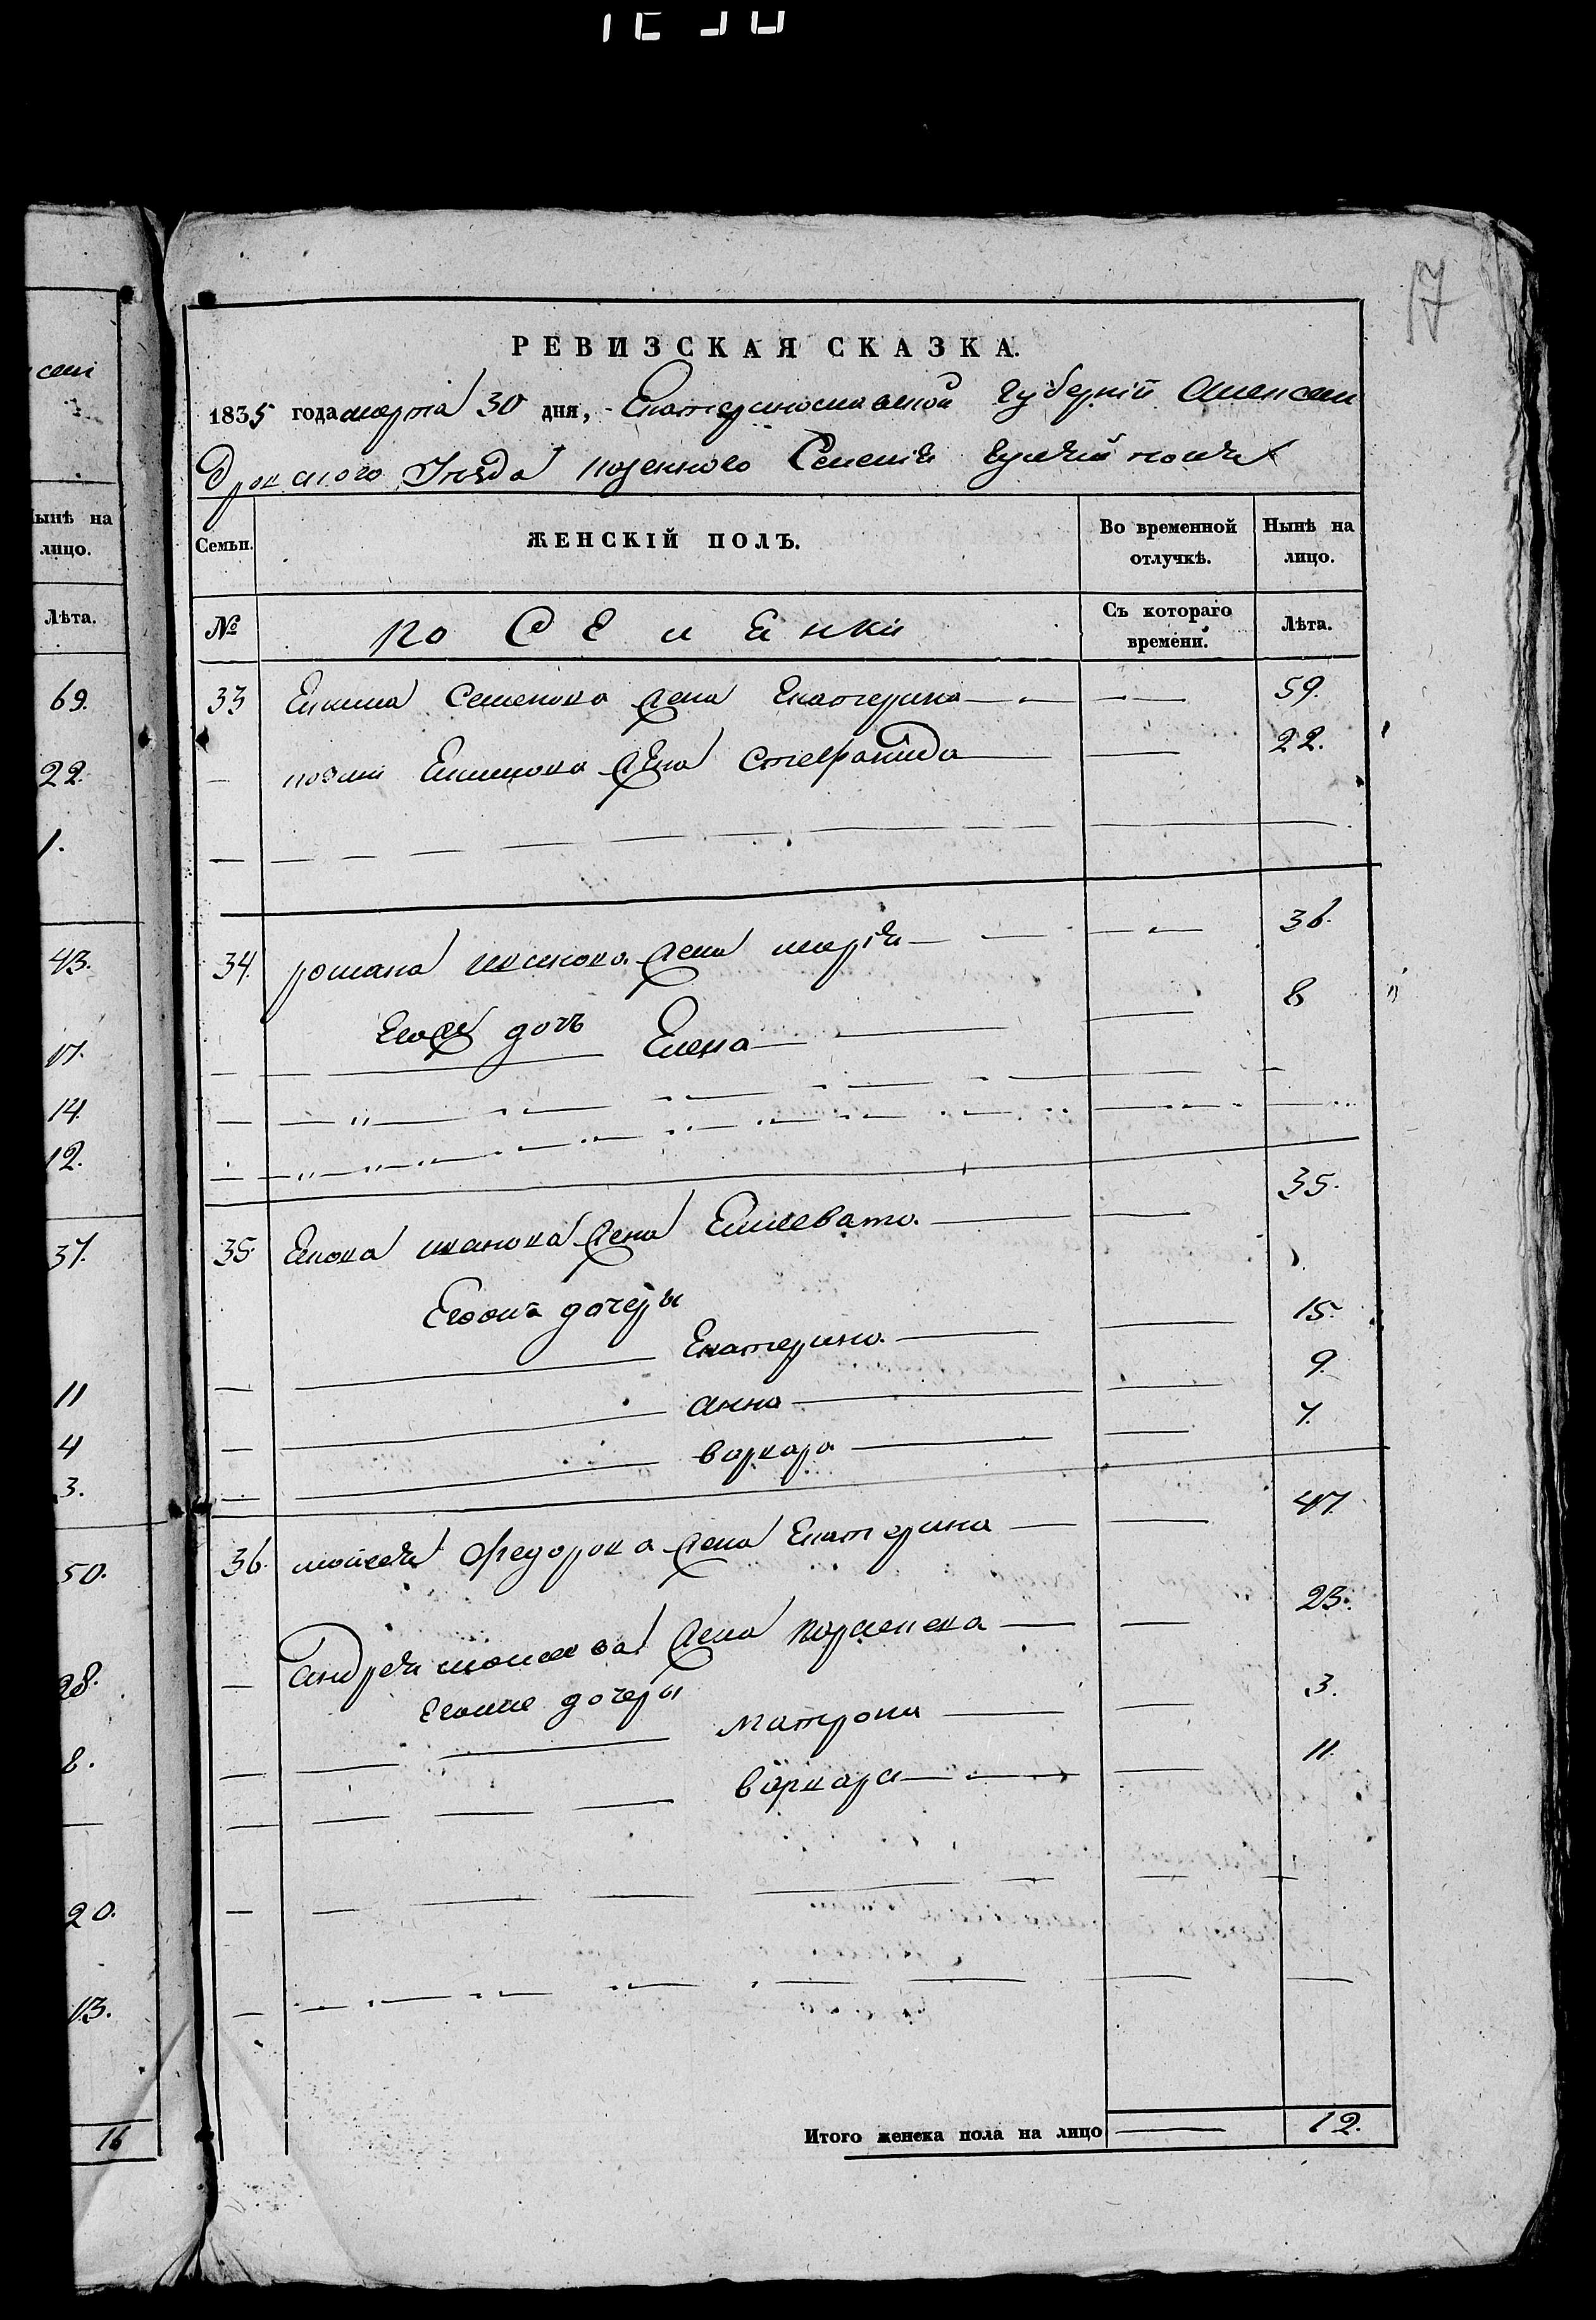 17
РЕВИЗСКАЯ СКАЗКА.
1835 года марта 30 дня, Екатеринославской Губернiи Алексан
дровского Уезда казенного Селенiя
Семьи. ЖЕНСКIЙ ПОЛЪ. Во временной отлучкѣ. Нынѣ на лицо.
№ поселенки Съ котораго времени. Лѣта.
33 Екима Семенова жена Екатерина 59.
Екимова жена Стефанида 22.
34. романа жена марiя 36.
Егоже дочь Елена 8
35. иванова жена Елисевата 35.
Егожъ дочеры
Екатерина 15.
анна 9.
варвара 7.
36. мойсея Федорова жена Екатерина 47.
андрея мойсеева жена 23.
Егоже дочеры
Матрона 3.
варвара 11.
Итого женска пола на лицо 12.
сан
Нынѣ на
лицо.
Лѣта.
69.
22.
1.
43.
17.
14.
12.
37.
11
4
3.
50.
28.
8.
20.
13.
16